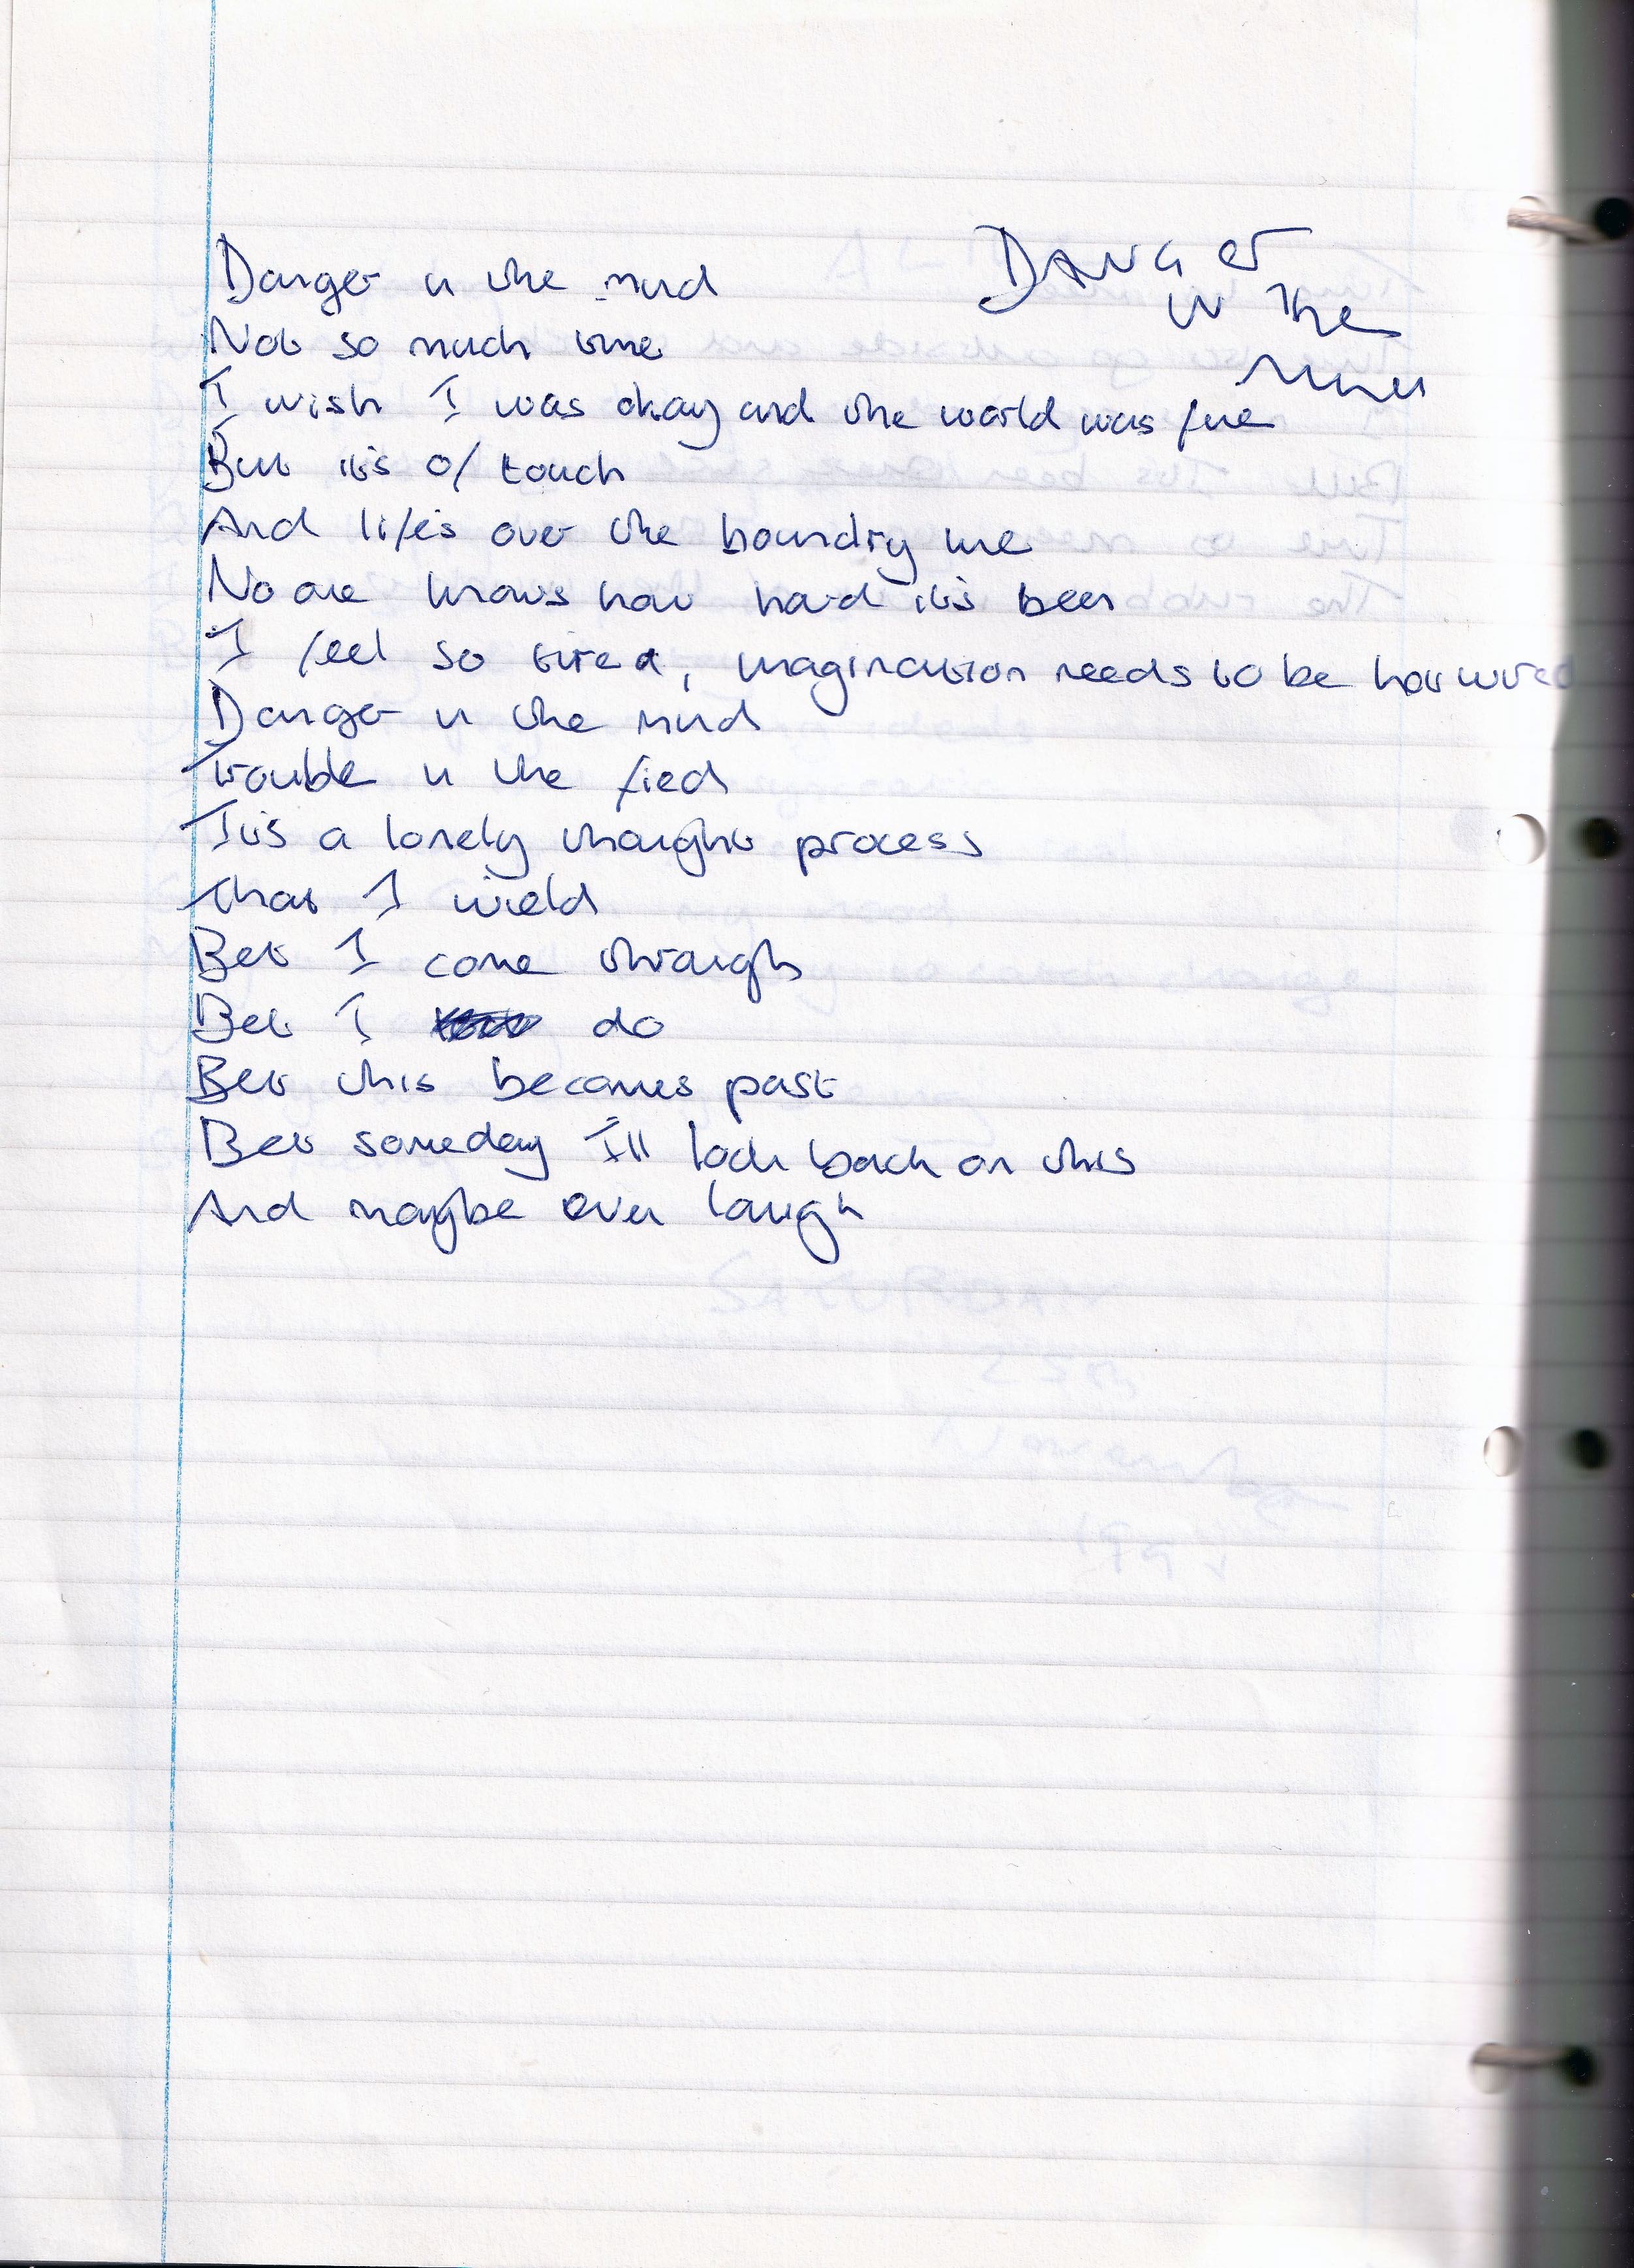 DANGER
IN THE
MIND
Danger in the mind
Not so much time
I wish I was okay and the world was fine
But it's of touch
And life's over the boundry line
No one knows how hard it's been
I feel so tired, imagination needs to be hot wired
Danger in the mind
Trouble in the field
It's a lonely thought process
that I wield
Bet I come through
Bet I do
Bet this becomes past
Bet someday I'll look back on this
And maybe even laugh
SATURDAY
25th
November